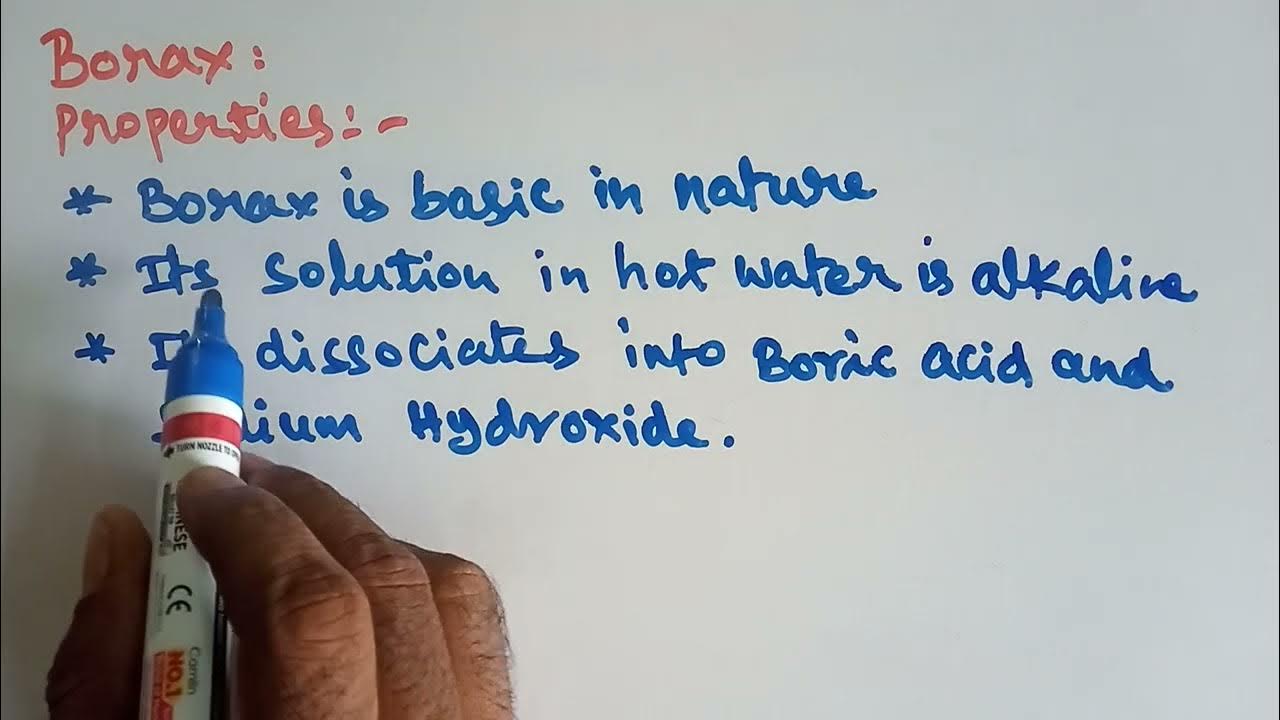 Borax:
Properties:-
* Borax is basic in nature
* Its solution in hot water is alkaline
* dissociates into Boric acid and
Hydroxide.
TURN NOZZLE TO
CE
Camlin
NO.1